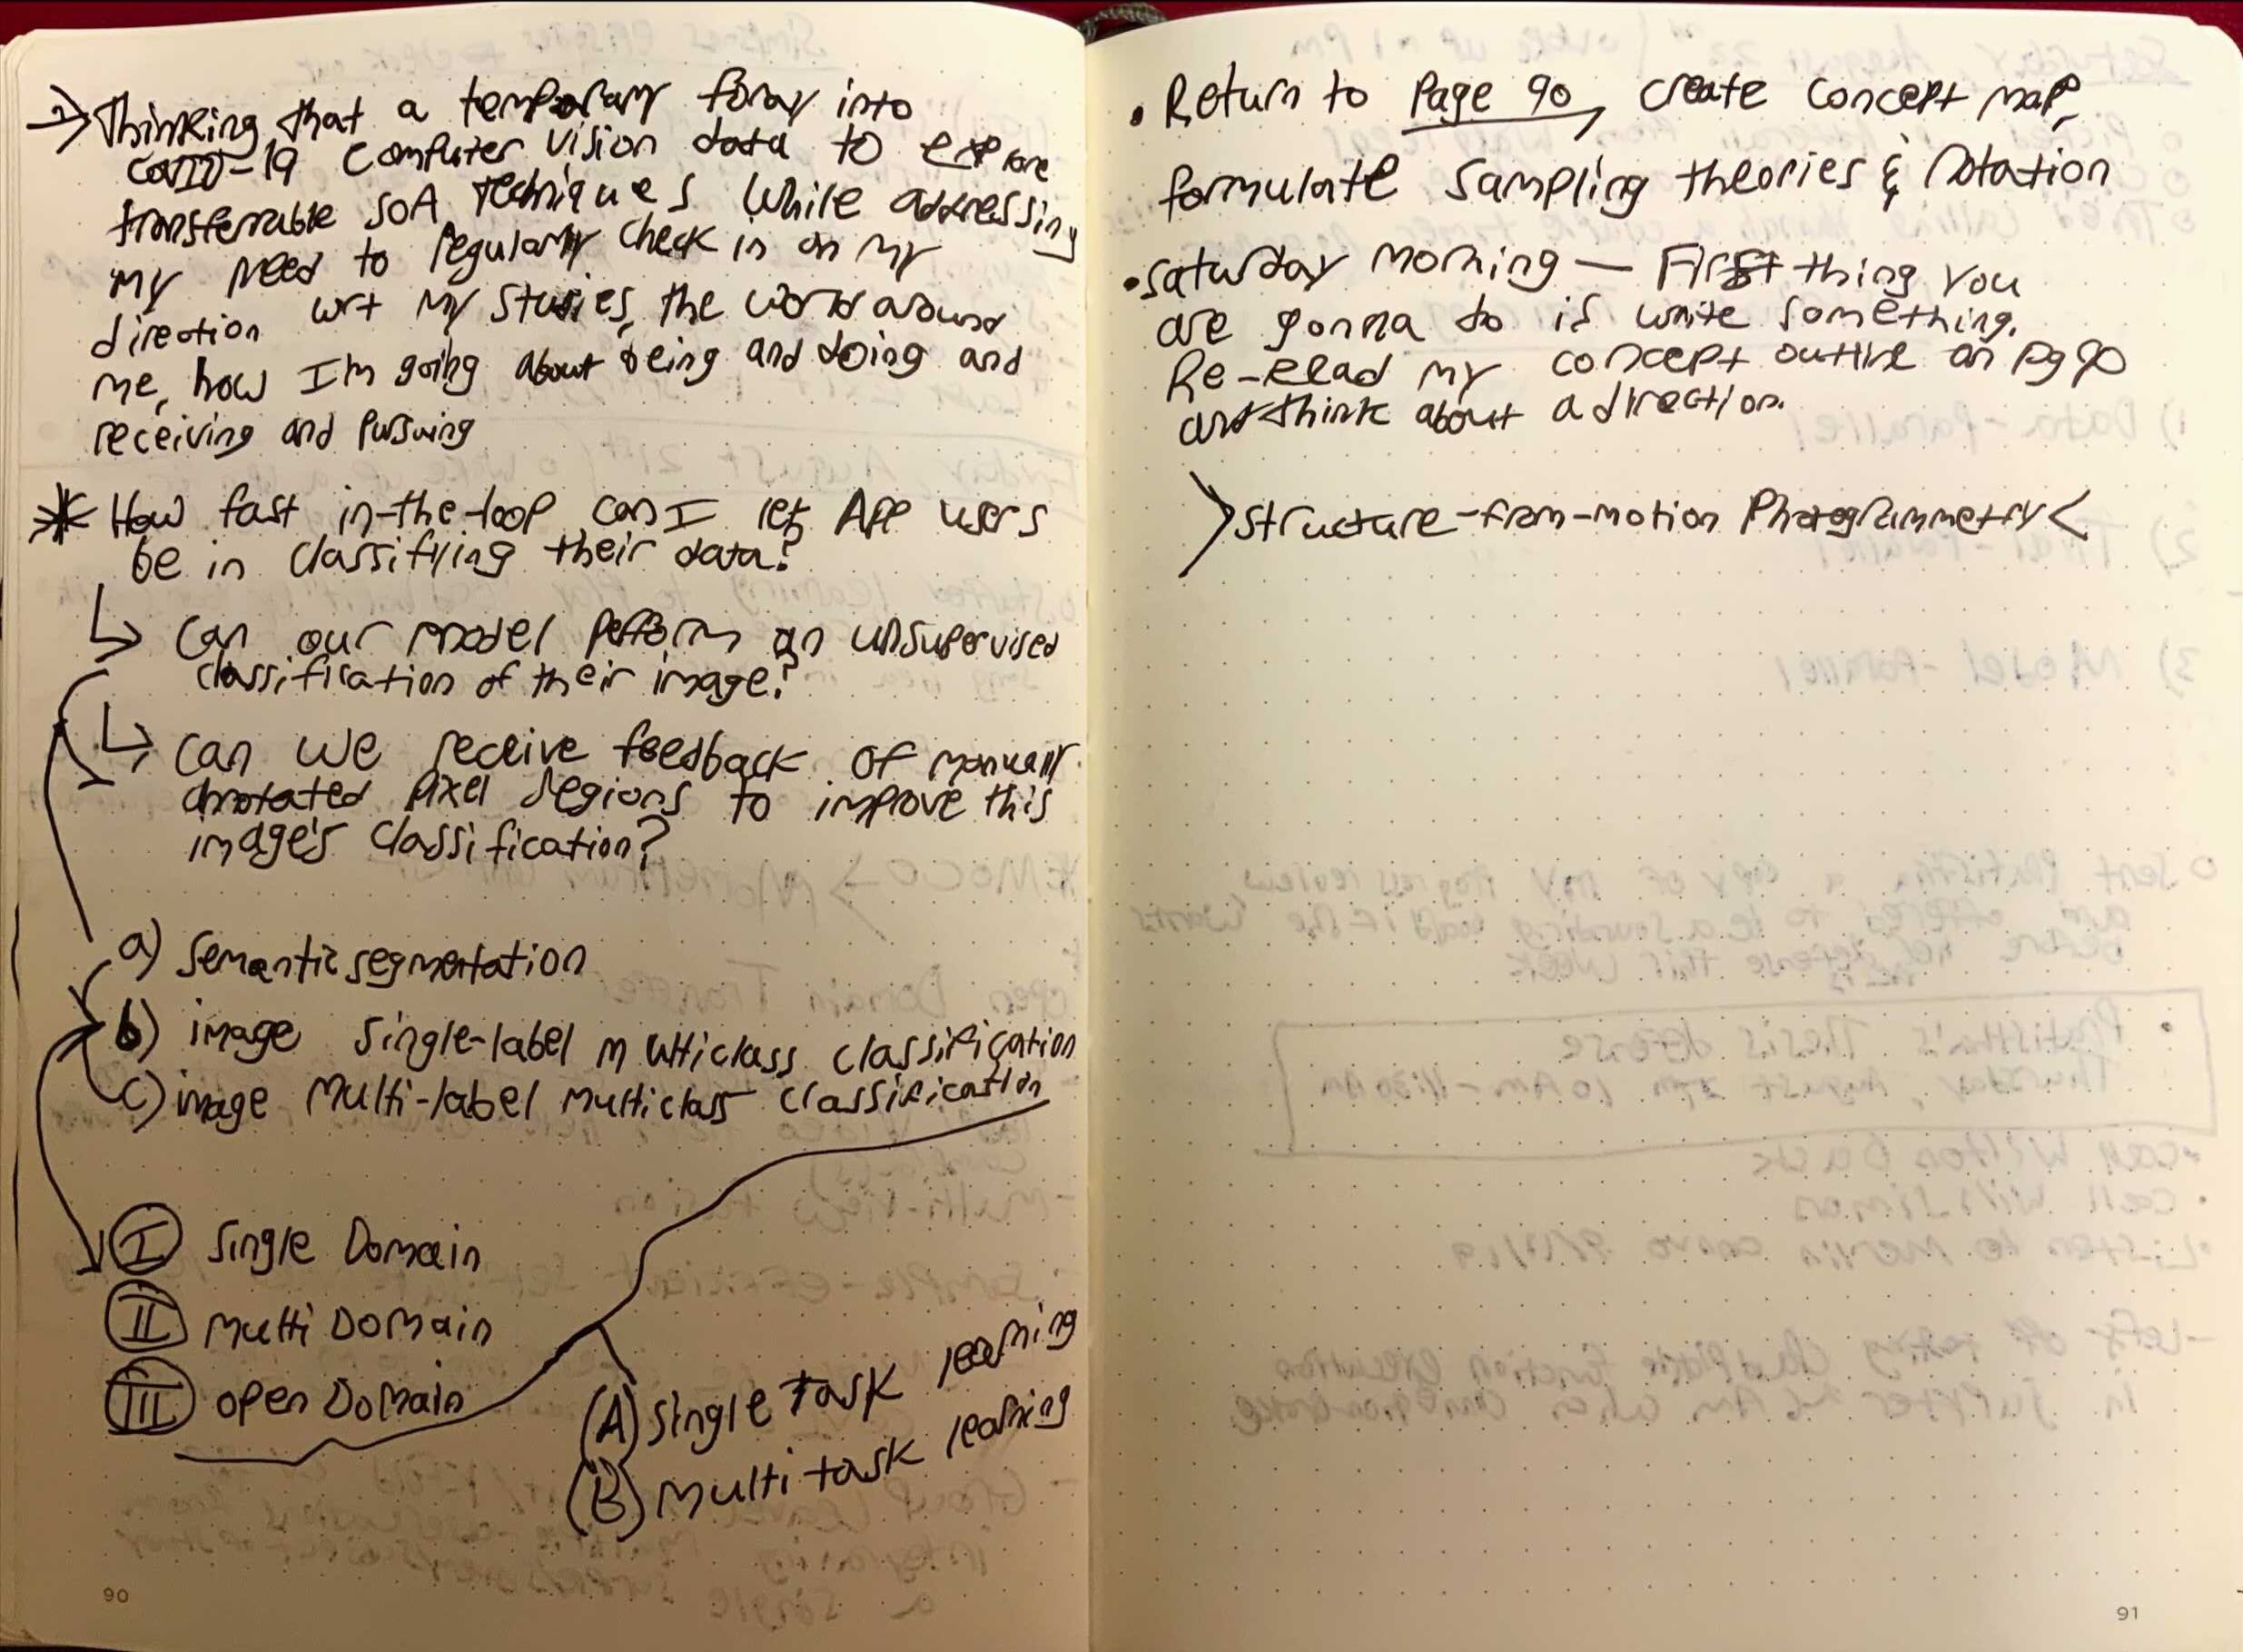 → Thinking that a temporary foray into
COVID-19 computer vision data to explore
transferrable SOA techniques while addressing
my need to regularly check in on my
direction wrt my studies, the world around
me, how I'm going about being and doing and
receiving and pursuing
* How fast in-the-loop can I let App users
be in classifying their data?
↳ Can our model perform an unsupervised
classification of their image?
↳ Can we receive feedback of manually
annotated pixel regions to improve this
image's classification?
a) semantic segmentation
b) image single-label multiclass classification
c) image multi-label multiclass classification
I Single Domain
II Multi Domain
III open Domain
(A) Single task learning
(B) Multi task learning
90
• Return to Page 90, create concept map,
formulate sampling theories & notation
• Saturday morning — First thing you
are gonna do is write something.
Re-read my concept outline on pg 90
and think about a direction.
>Structure-from-motion Photogrammetry<
91